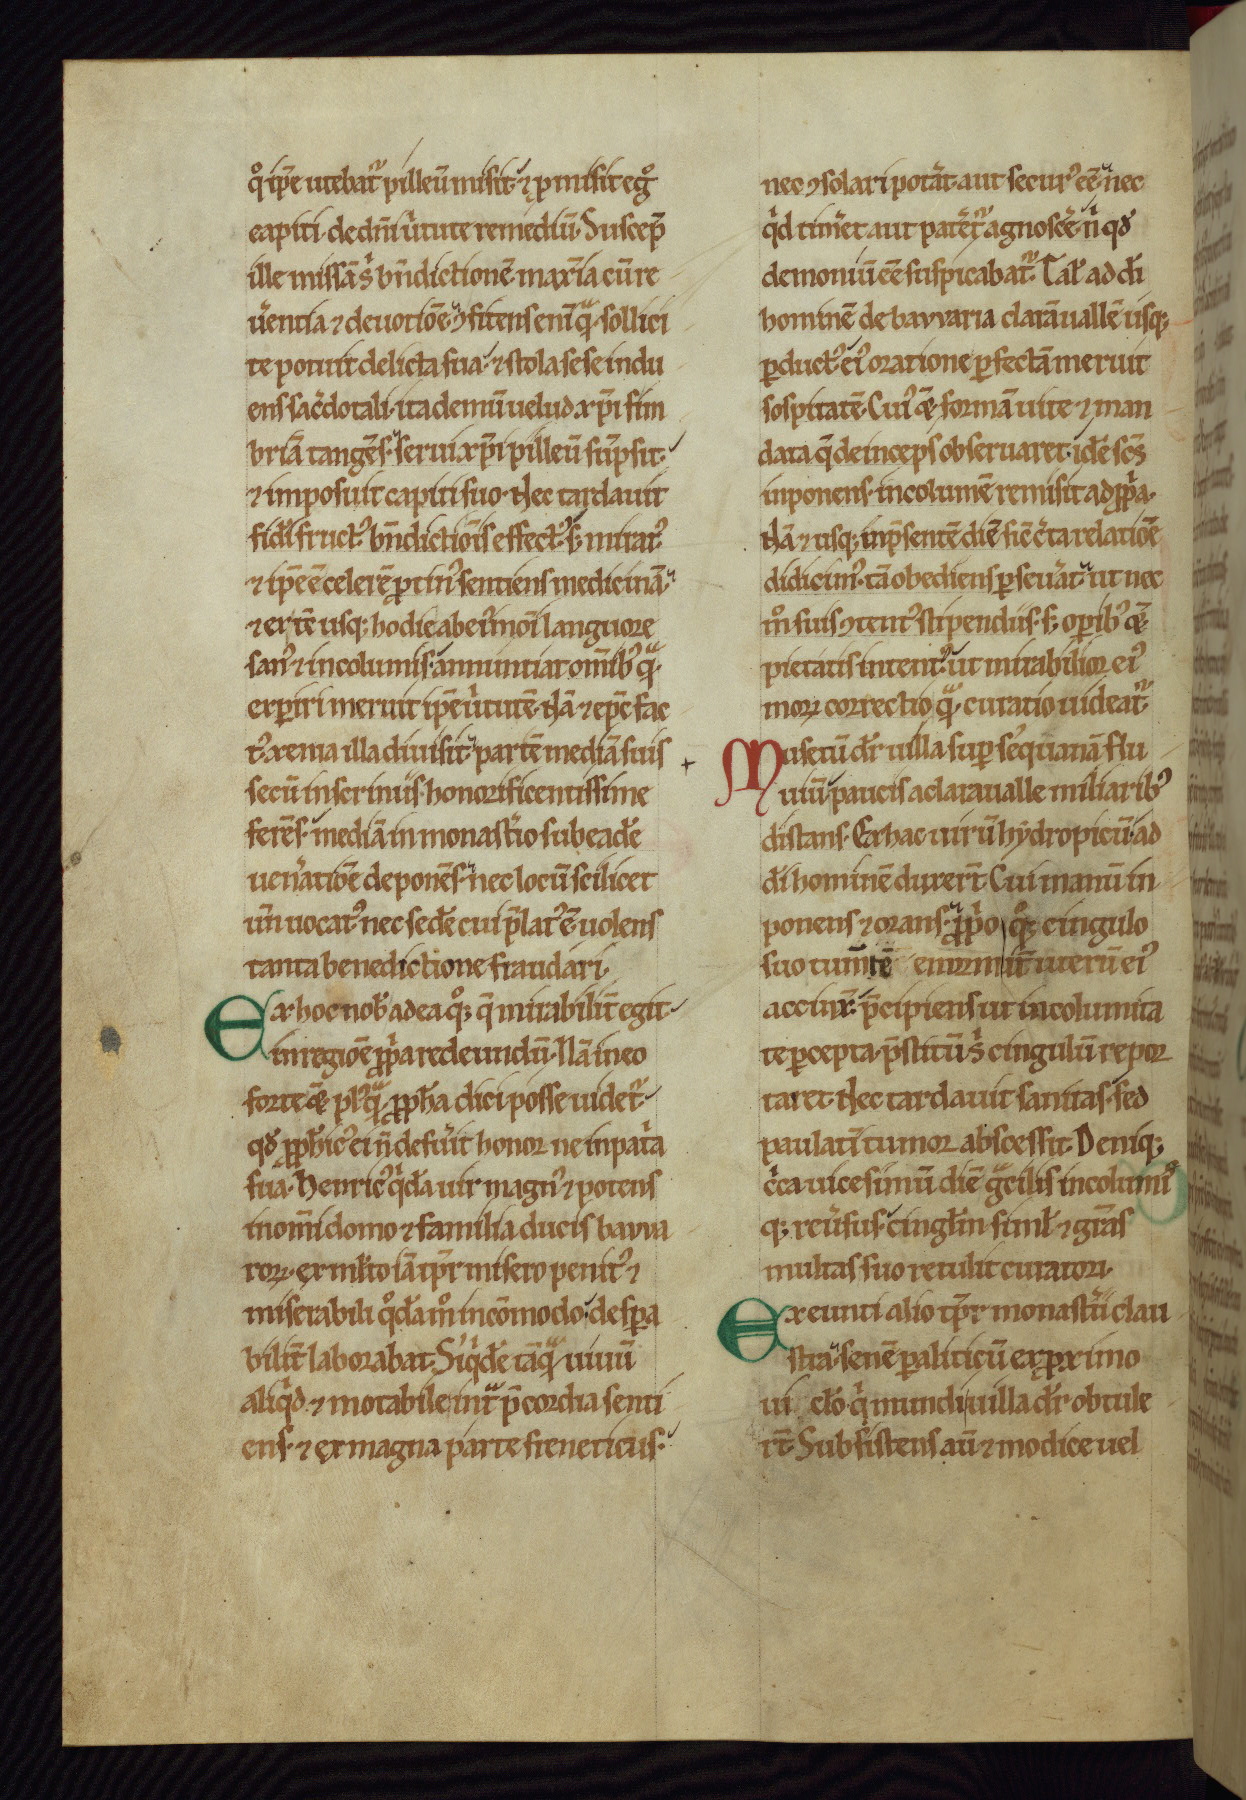 q̊ ip̄e utebat᷑ pilleū misit· ⁊ ꝓmisit eg̊
capiti de dn̄i uͥtute remediū. Suscep̄
ille missā sͥ bn̄dictionē maxīa cū re
u͛entia ⁊ deuotiōe· ꝯfitens enī qͣ sollici
te potuit delicta sua· ⁊ stola sese indu
ens sac͛dotali· ita demū uelud xp̄i fim
briā tangēs· serui xp̄i pilleū sūpsit·
⁊ imposuit capiti suo. Nec tardauit
fidei fructꝰ bn̄dictiōis effectꝰ· s; mirat᷑
⁊ ip̄e celerē ꝓtinꝰ sentiens medicinā·
⁊ ex tē usq; hodie ab ei͛moī languore
sanꝰ ⁊ incolumis· annuntiat om̄ibꝰ qͣ
exꝑiri meruit ip̄e uͥtutē. Nā ⁊ ep̄c fac
tꝰ xenia illa diuisit· partē mediā suis
secū in scriniis honorificentissime
ferēs· mediā in monast͛io sub eadē
uen͛atiōe deponēs· nec locū scilicet
un̄ uocatꝰ nec sedē cui p̄latꝰ ē uolens
tanta benedictione fraudari.
Ex hoc nob̄ adea q̊q; q̄ mirabilit̄ egit·
in regiōe ꝓpͥa redeundū. Nā in eo
forte q̄ plꝰqͣ ꝓpha dici posse uidet᷑·
qď ꝓphicꝰ ei n̄ defu͛it honor ne in pat͛a
sua. Henricꝰ qͥdā uir magnꝰ ⁊ potens
in om̄i domo ⁊ familia ducis bavva
roꝝ· ex ml̄to iā tp̄r misero penitꝰ ⁊
miserabili q̊dā m̊ incōmodo· despa
bilit̄ laborabat. Siqͥdē tāqͣ uiuū
aliqͥd ⁊ motabile int͛ p̄cordia senti
ens· ⁊ ex magna parte freneticus·
nec ꝯsolari pot͛at aut securꝰ eē· nec
qͥd tim͛et aut pat͛et᷑ agnosc͛e· nͥ qď
demoniū eē suspicabat᷑. Tal̄ ad dī
hominē de bavvaria clarāuallē usq;
ꝑductꝰ· eiꝰ oratione ꝑfectā meruit
sospitatē. Cui q̄ formā uite ⁊ man
data q̄ deinceps obseruaret· idē sc̄s
inponens· incolumē remisit ad ꝓpͥa.
Nā ⁊ usq; in p̄sentē diē sic c͛ta relatiōe
didicimꝰ· tā obediens ꝑseu͛at· ut nec
m̊ suis ꝯtentꝰ stipendiis· s; oꝑibꝰ q̄
pietatis intentꝰ· ut mirabilior eiꝰ
moꝝ correctio qͣ curatio uideat᷑.
Musetū dr̄ uilla suꝑ sequanā flu
uiū· paucis a claraualle miliaribꝰ
distans. Ex hac uirū hydropicū· ad
dī hominē duxer̄t. Cui manū in
ponens ⁊ orans· ꝓpͥo q̊q; cingulo
suo tumētē enormit̄ uterū eiꝰ
accinxͥ· p̄cipiens ut incolumita
te ꝑcepta· p̄stitū sͥ cingulū repor
taret. Nec tardauit sanitas· sed
paulatī tumor abscessit. Deniq;
c͛ca uicesimū diē gͣcilis incolumi
q; reu͛sus· cingl̄m siml̄ ⁊ gr̄as
multas suo retulit curatori.
Exeunti alio tp̄r monast͛ii clau
stra· senē ꝑaliticū ex ꝓximo
ui clo· qͥ mundiuilla dr̄ obtule
rt̄. Subsistens aū ⁊ modice uel